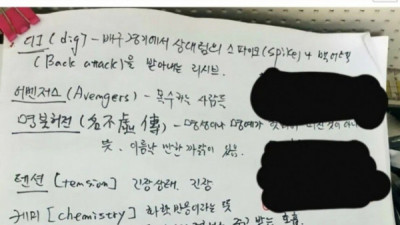 디그(dig) - 배구경기에서 상대팀의 스파이크(spike)나 백어택
(Back attack)을 받아내는 리시브.
어벤저스(Avengers) - 복수하는 사람들
명불허전(名不虛傳) - 명성이나 명예가
뜻. 이름날 만한 까닭이 있음.
텐션[tension] 긴장상태, 긴장
케미[chemistry] 화학반응이라는 뜻